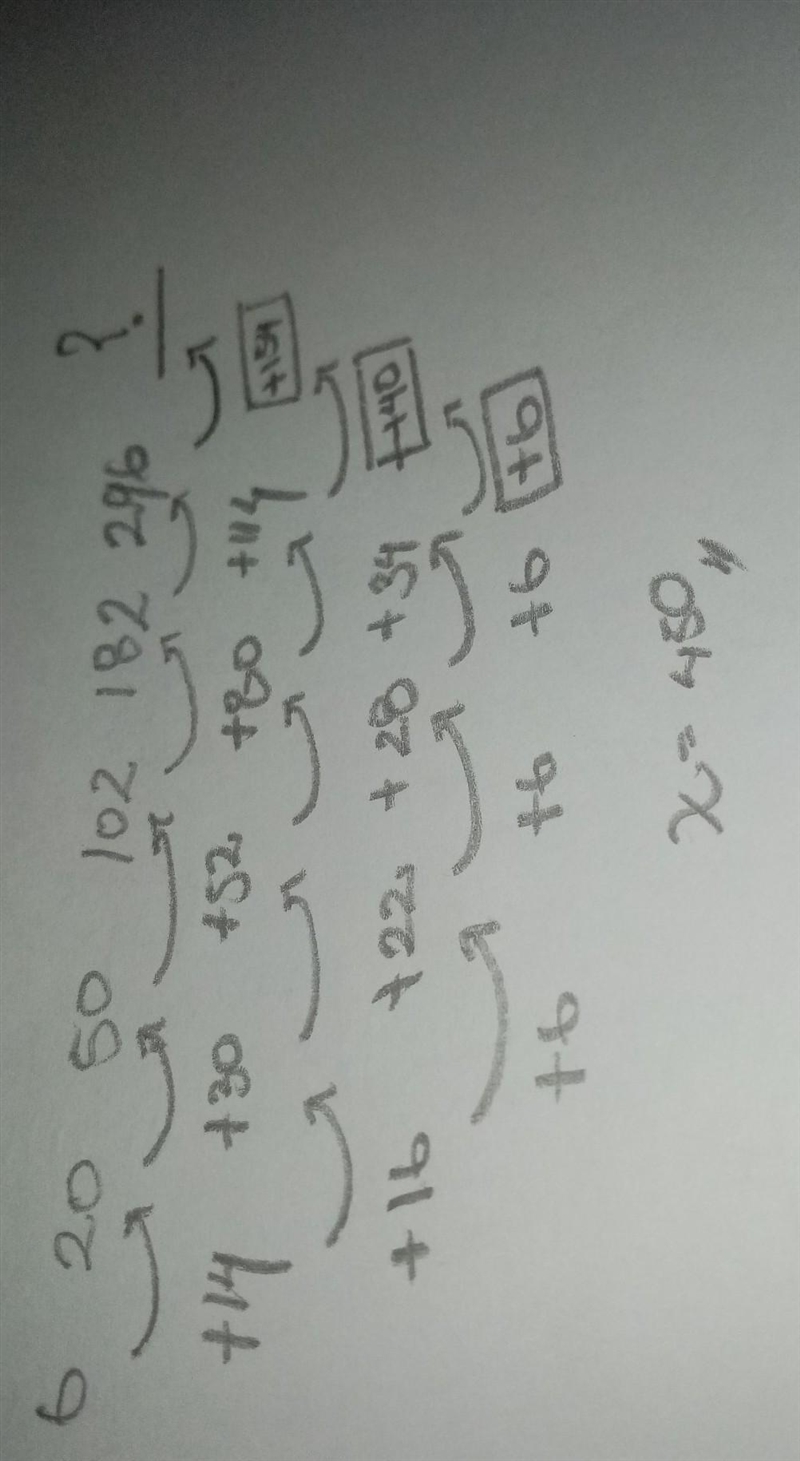 6 20 50 102 182 296 ?
+14 +30 +52 +80 +114 +154
+16 +22 +28 +34 +40
+6 +6 +6 +6
x = 450,,